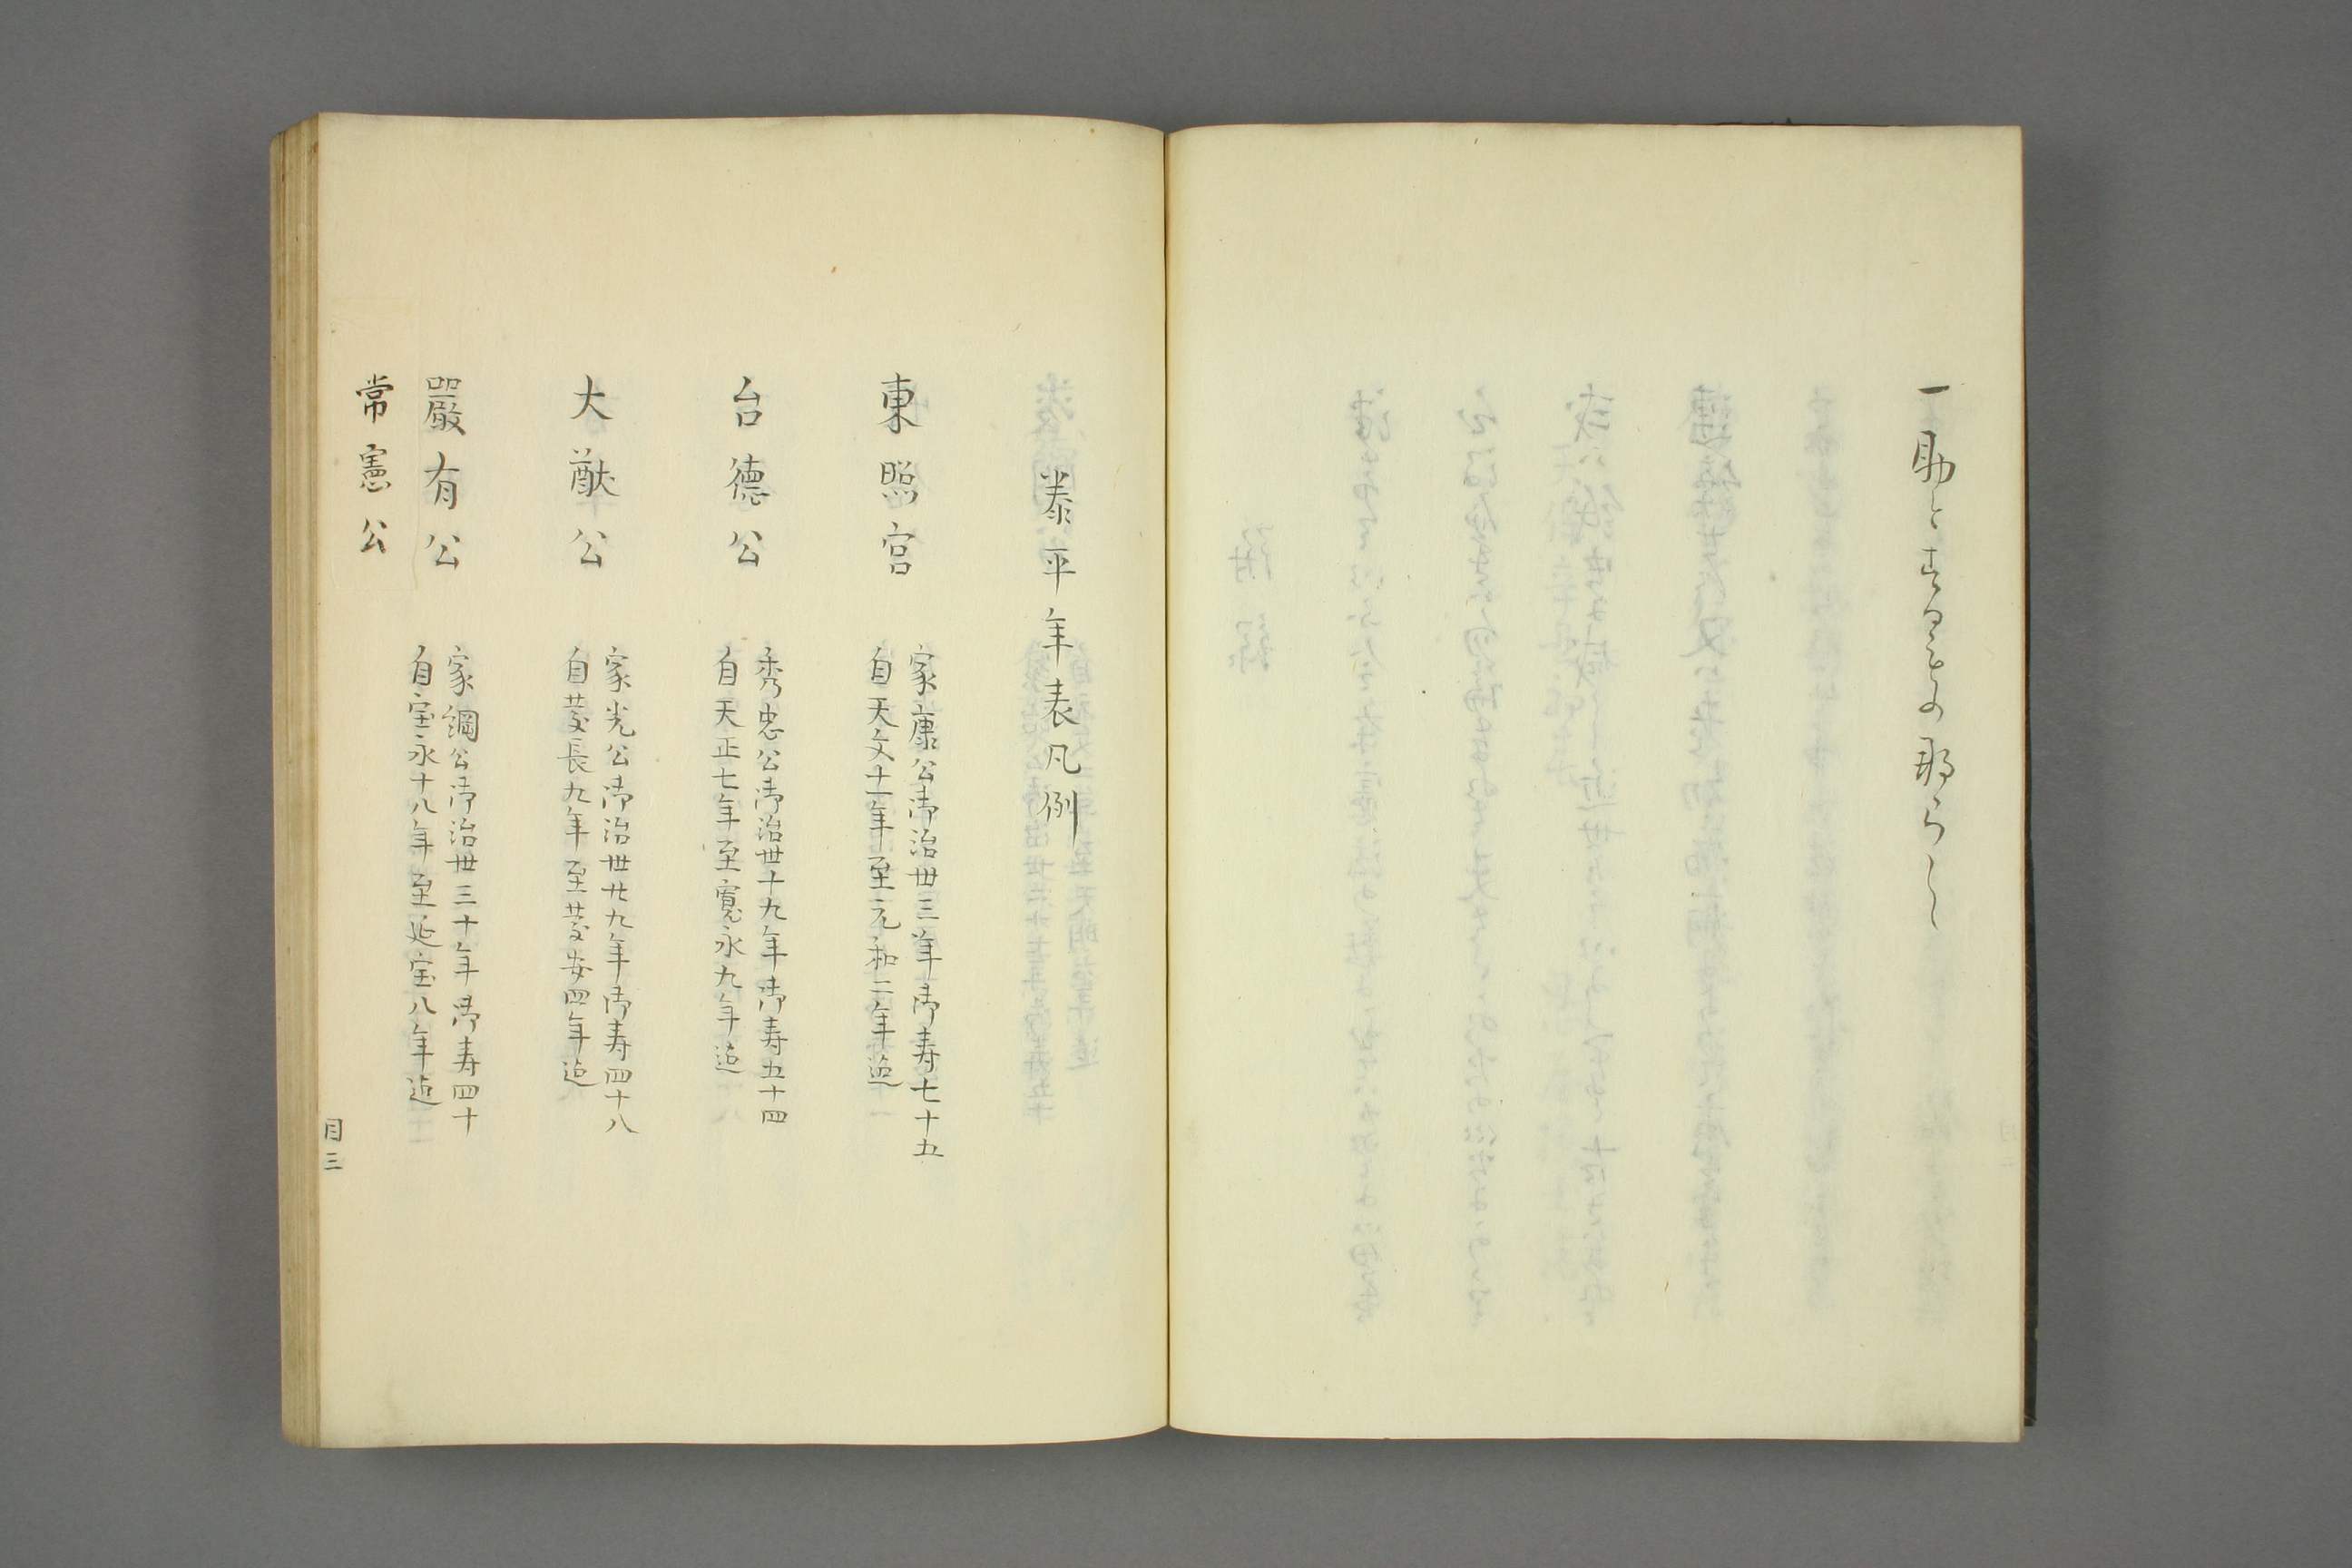 一助とするもの那らし
泰平年表凡例
東照宮
家康公御治世三年御寿七十五
自天文十一年至元和二年迄
台德公
秀忠公御治世十九年御寿五十四
自天正七年至寛永九年迄
大猷公
家光公御治世廿九年御寿四十八
自慶長九年至慶安四年迄
嚴有公
家綱公御治世三十年御寿四十
自宝永十八年至延宝八年迄
常憲公
目三